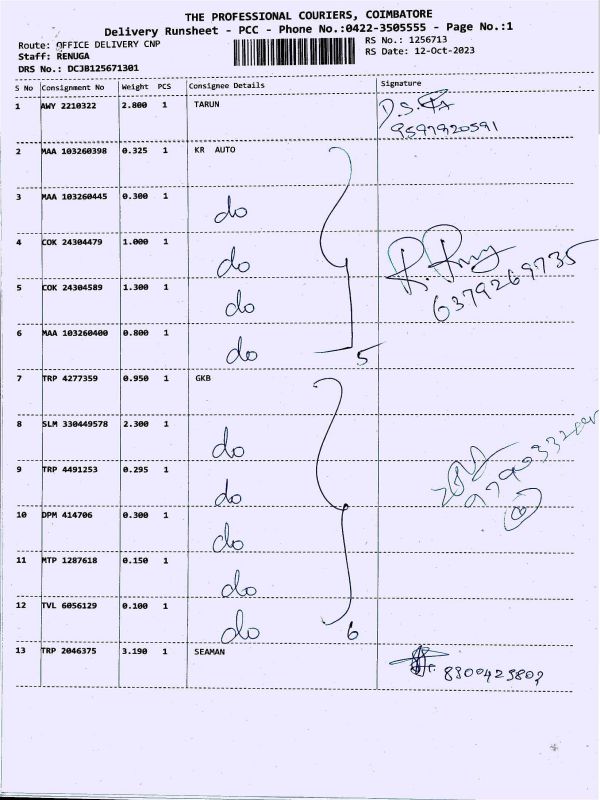 THE PROFESSIONAL COURIERS, COIMBATORE
Delivery Runsheet - PCC - Phone No.:0422-3505555 - Page No.:1
Route: OFFICE DELIVERY CNP
RS No.: 1256713
Staff: RENUGA
RS Date: 12-Oct-2023
DRS No.: DCJB125671301
S No Consignment No Weight PCS Consignee Details Signature
1 AWY 2210322 2.800 1 TARUN
9597920591
2 MAA 103260398 0.325 1 KR AUTO
3 MAA 103260445 0.300 1 do
4 COK 24304479 1.000 1 do
6379269735
5 COK 24304589 1.300 1 do
6 MAA 103260400 0.800 1 do 5
7 TRP 4277359 0.950 1 GKB
8 SLM 330449578 2.300 1 do
9 TRP 4491253 0.295 1 do
10 DPM 414706 0.300 1 do
11 MTP 1287618 0.150 1 do
12 TVL 6056129 0.100 1 do 6
13 TRP 2046375 3.190 1 SEAMAN